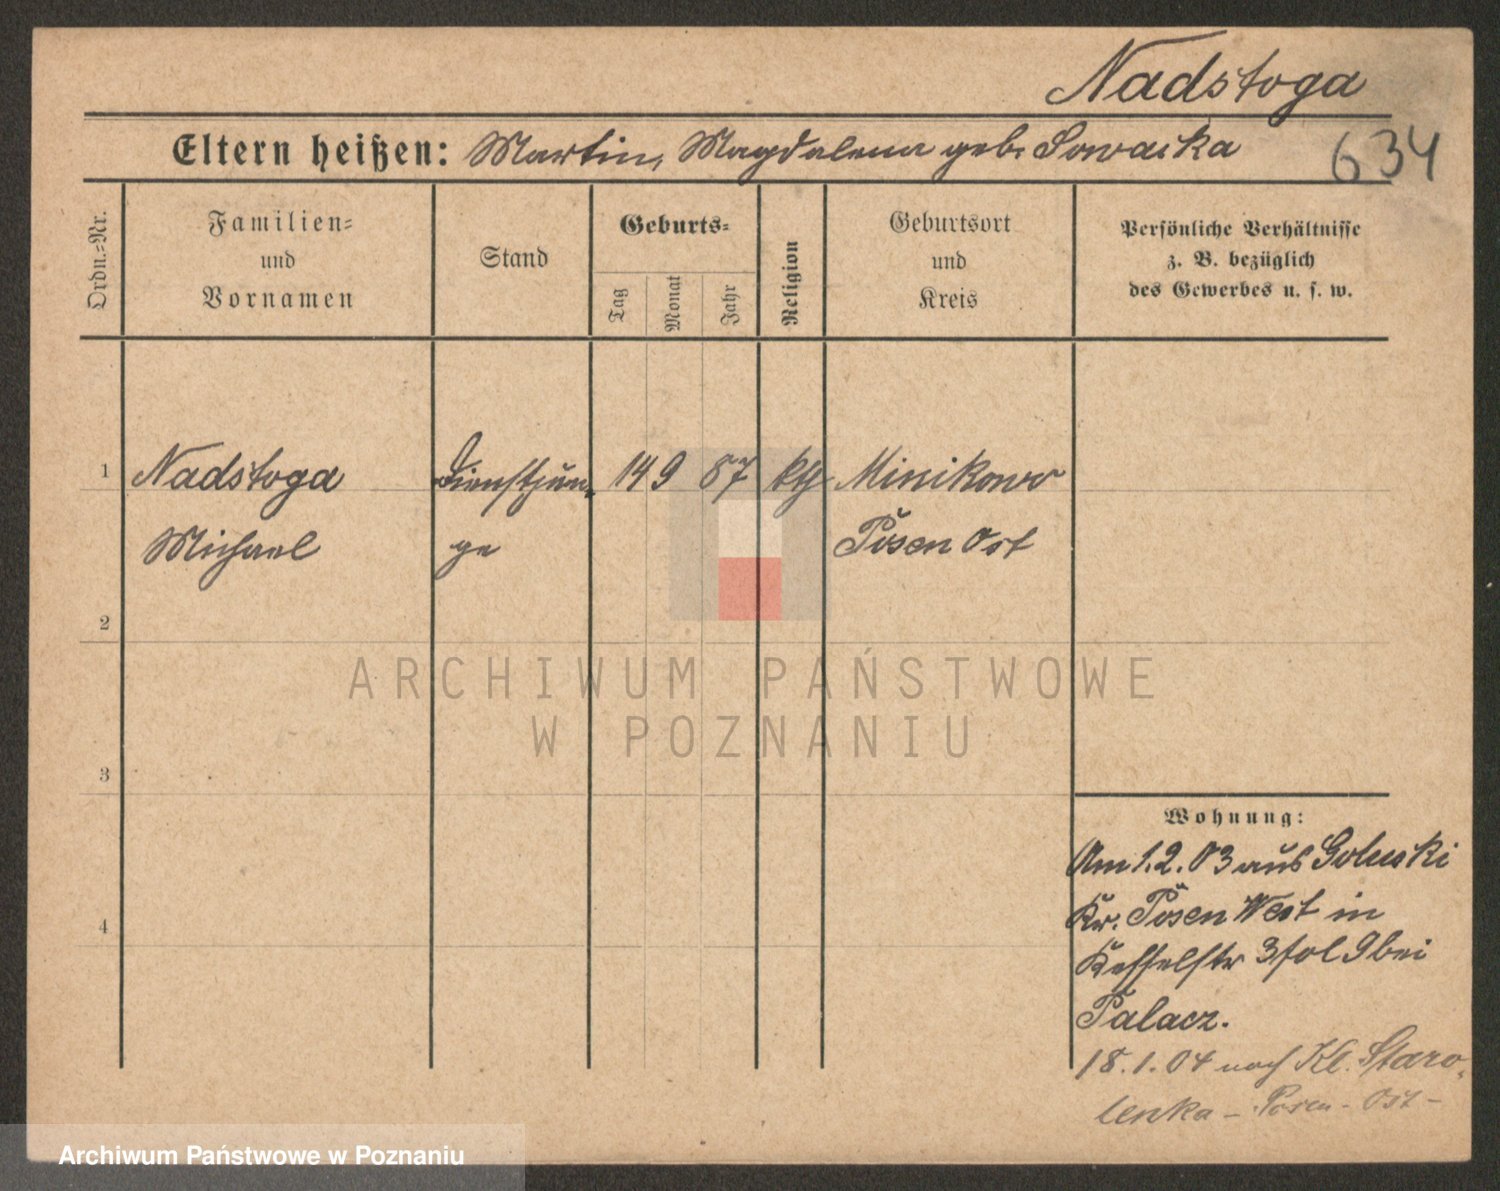 Nadstoga
Eltern heißen: Martin, Magdalena geb. Sowacka
634
Ordn.=Nr.
Familien=
und
Vornamen
Stand
Geburts=
Tag
Monat
Jahr
Religion
Geburtsort
und
Kreis
Persönliche Verhältnisse
z. B. bezüglich
des Gewerbes u. s. w.
1 Nadstoga Dienstjun- 14 9 87 kth Minikowo
Michael ge Posen Ost
2
ARCHIWUM PAŃSTWOWE
W POZNANIU
3
Wohnung:
Am 1.2.03 aus Goluski
4 Kr. Posen West in
Kesselstr 3 fol 9 bei
Palacz.
18.1.04 nach Kl. Staro-
lenka - Posen - Ost -
Archiwum Państwowe w Poznaniu